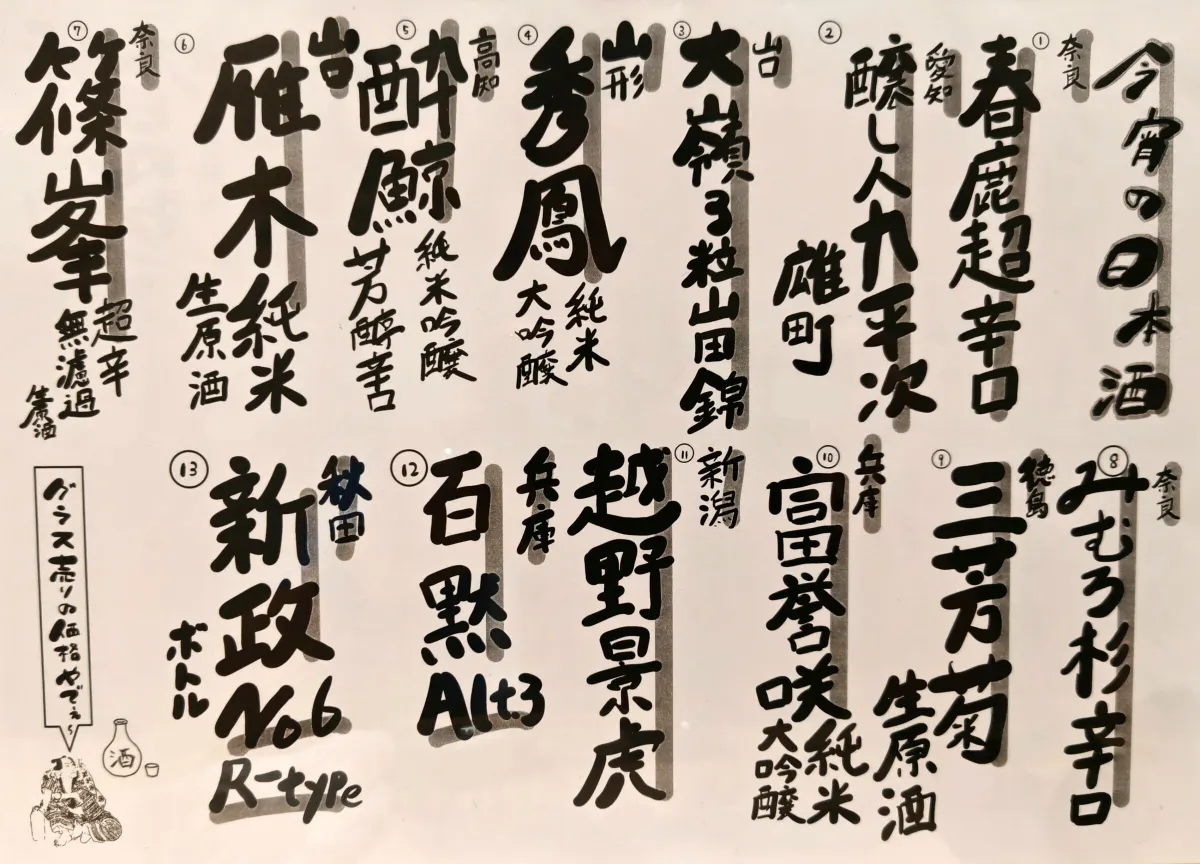 今宵の日本酒
①
奈良
春鹿超辛口
②
愛知
醸し人九平次
雄町
③
山口
大嶺3粒山田錦
④
山形
秀鳳
純米
大吟醸
⑤
高知
酔鯨
純米吟醸
芳醇辛口
⑥
山口
雁木純米
生原酒
⑦
奈良
篠峯
超辛
無濾過
生原酒
⑧
奈良
みむろ杉辛口
⑨
徳島
三芳菊
生原酒
⑩
兵庫
富田誉咲
純米
大吟醸
⑪
新潟
越野景虎
⑫
兵庫
百黙
Alt.3
⑬
秋田
新政
No6
R-type
ボトル
グラス売りの価格やでぇ~
酒